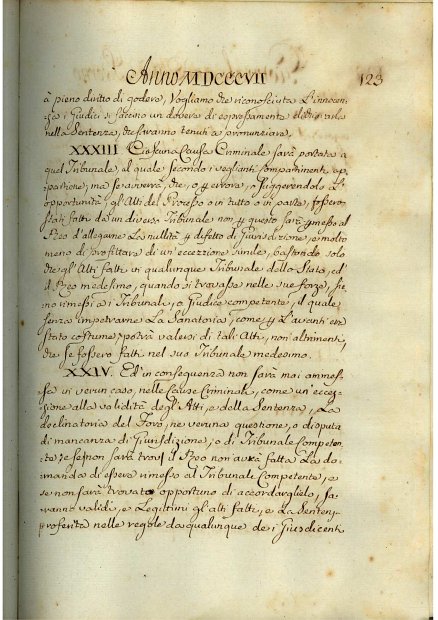 Anno MDCCCVII 123
à pieno diritto di godere, Vogliamo che riconosciuta L'innocen-
za i Giudici si faccino un dovere di espressamente dichiararla
nella Sentenza, che saranno tenuti a pronunziare.
XXXIII Ciascuna Causa Criminale sarà portata a
quel Tribunale, al quale secondo i veglianti compartimenti ap-
partiene; ma se avverrà, che, o p errore, o suggerendolo L'
opportunità, gli Atti del Processo o in tutto o in parte, fossero
stati fatti da un diverso Tribunale non p questo sarà pmesso al
Reo d'allegarne Le nullità p difetto di Giurisdizione, e molto
meno di profittare di un'eccezione simile, bastando solo
che gli Atti fatti in qualunque Tribunale dello Stato, ed
il Reo medesimo, quando si trovasse nelle sue forze, sie-
no rimessi a i Tribunale, o Giudice competente, il quale
senza impetrarne La Sanatoria, come p L'avanti era
stato costume, potrà valersi di tali Atti, non altrimenti,
che se fossero fatti nel suo Tribunale medesimo.
XXIV. Ed in conseguenza non sarà mai ammes-
sa in verun caso, nelle cause Criminali, come un'ecce-
zione alla validità degli Atti, e della Sentenza, La
declinatoria del Foro, ne veruna questione, o disputa
di mancanza di Giurisdizione, o di Tribunale Competen-
te; se non sarà il Reo non avrà fatta La do-
manda di essere rimesso al Tribunale Competente, e
se non sarà trovato opportuno di accordarglielo, sa-
ranno validi, e Legittimi gli atti fatti, e La Sentenza
proferita nelle regole da qualunque de i Giusdicenti